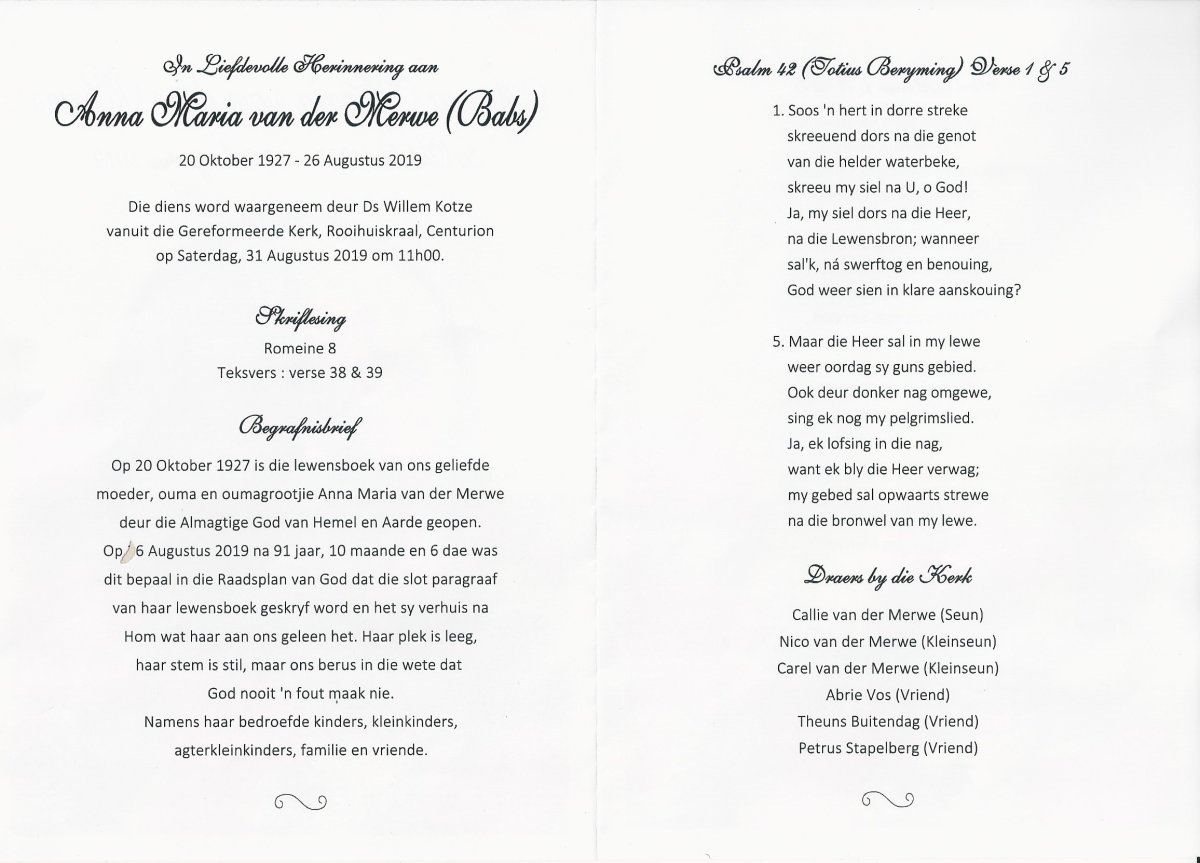 In Liefdevolle Herinnering aan
Anna Maria van der Merwe (Babs)
20 Oktober 1927 - 26 Augustus 2019
Die diens word waargeneem deur Ds Willem Kotze
vanuit die Gereformeerde Kerk, Rooihuiskraal, Centurion
op Saterdag, 31 Augustus 2019 om 11h00.
Skriflesing
Romeine 8
Teksvers : verse 38 & 39
Begrafnisbrief
Op 20 Oktober 1927 is die lewensboek van ons geliefde
moeder, ouma en oumagrootjie Anna Maria van der Merwe
deur die Almagtige God van Hemel en Aarde geopen.
Op 6 Augustus 2019 na 91 jaar, 10 maande en 6 dae was
dit bepaal in die Raadsplan van God dat die slot paragraaf
van haar lewensboek geskryf word en het sy verhuis na
Hom wat haar aan ons geleen het. Haar plek is leeg,
haar stem is stil, maar ons berus in die wete dat
God nooit 'n fout maak nie.
Namens haar bedroefde kinders, kleinkinders,
agterkleinkinders, familie en vriende.
Psalm 42 (Totius Beryming) Verse 1 & 5
1. Soos 'n hert in dorre streke
skreeuend dors na die genot
van die helder waterbeke,
skreeu my siel na U, o God!
Ja, my siel dors na die Heer,
na die Lewensbron; wanneer
sal'k, ná swerftog en benouing,
God weer sien in klare aanskouing?
5. Maar die Heer sal in my lewe
weer oordag sy guns gebied.
Ook deur donker nag omgewe,
sing ek nog my pelgrimslied.
Ja, ek lofsing in die nag,
want ek bly die Heer verwag;
my gebed sal opwaarts strewe
na die bronwel van my lewe.
Draers by die Kerk
Callie van der Merwe (Seun)
Nico van der Merwe (Kleinseun)
Carel van der Merwe (Kleinseun)
Abrie Vos (Vriend)
Theuns Buitendag (Vriend)
Petrus Stapelberg (Vriend)